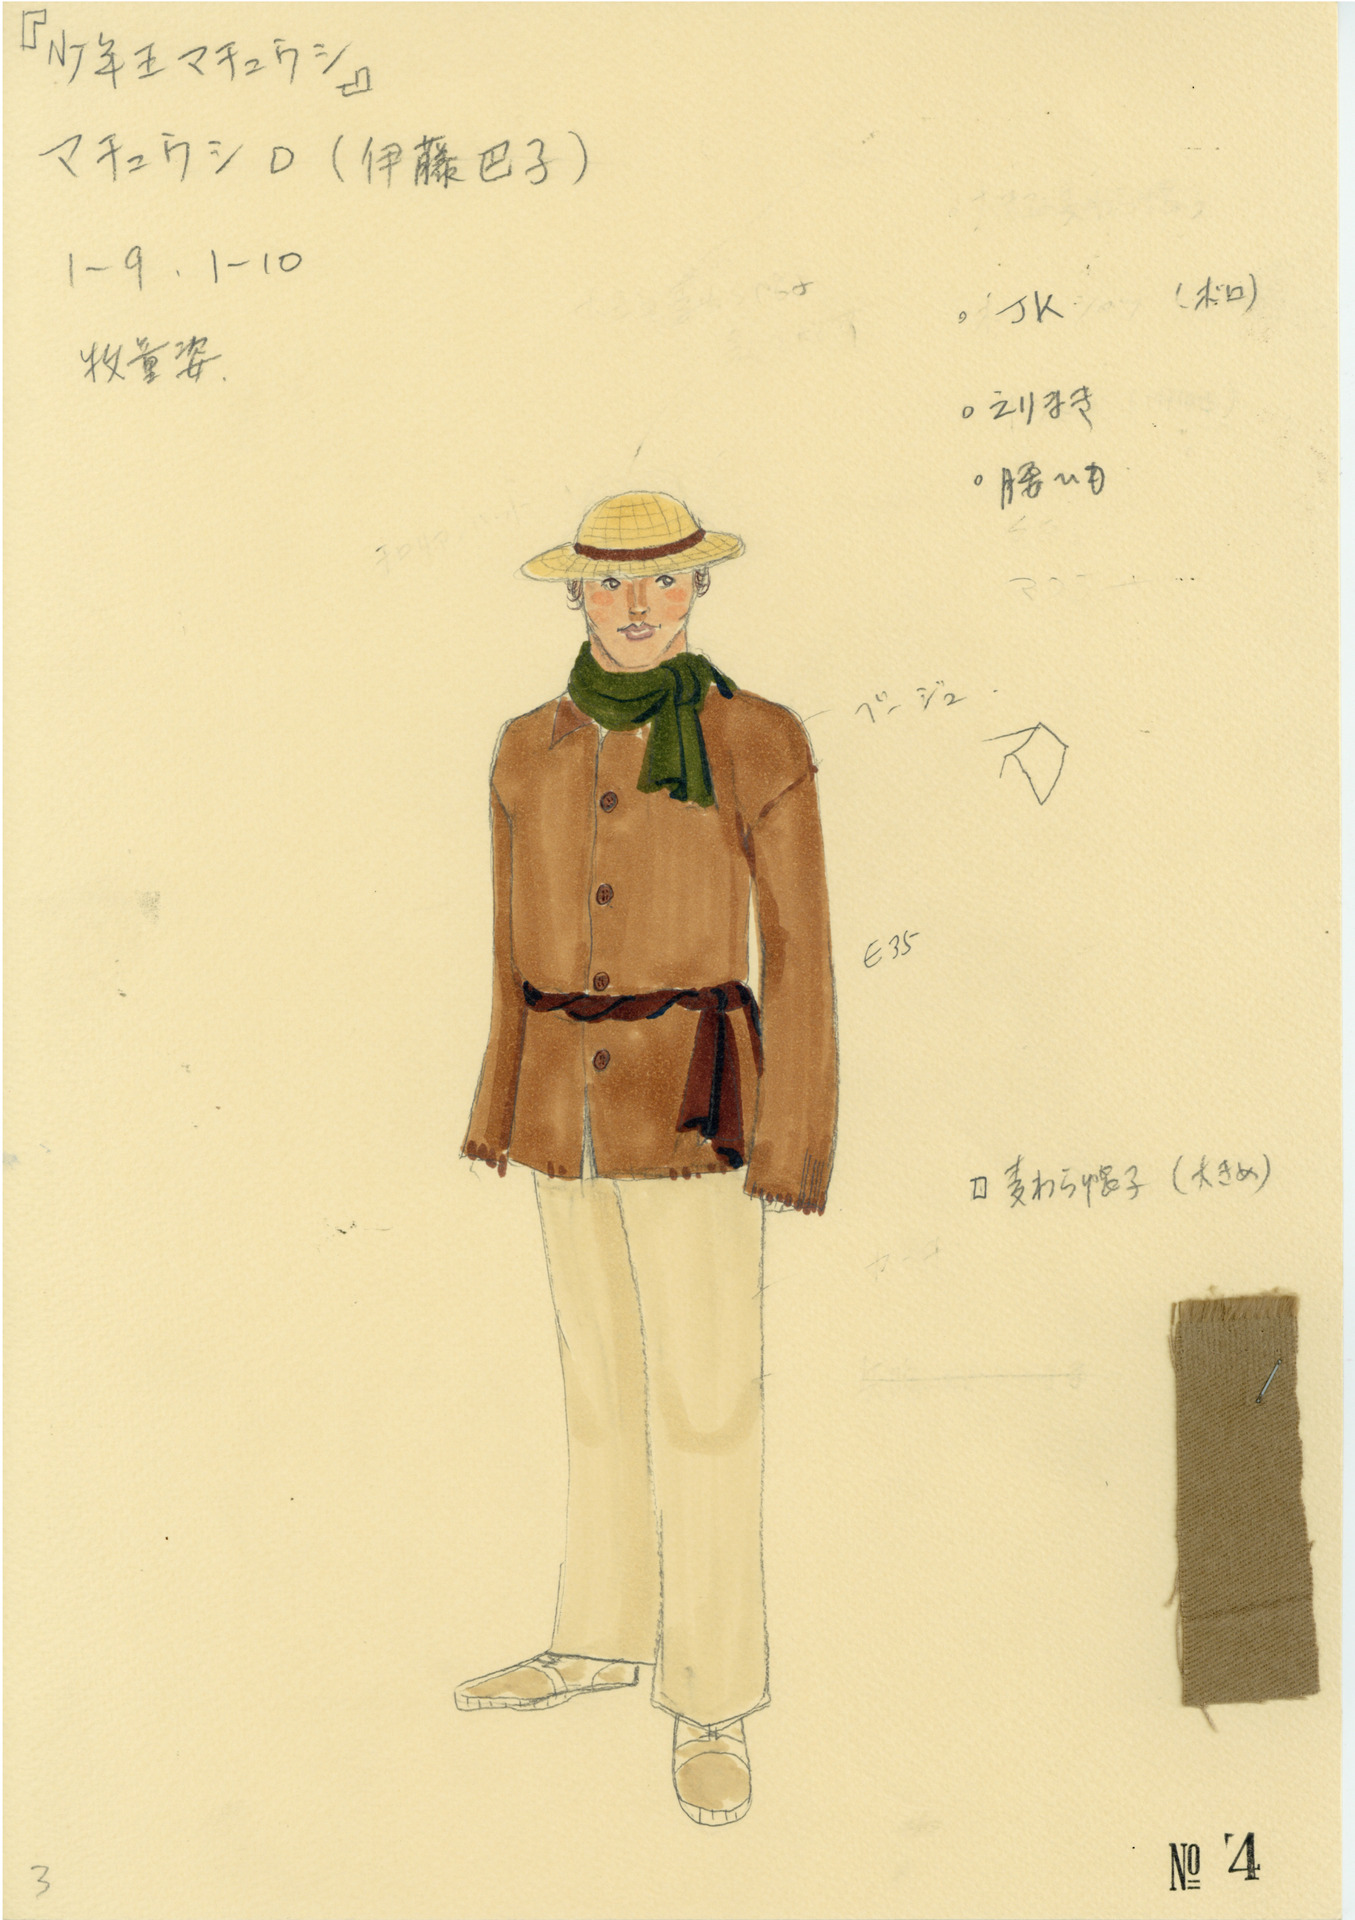 『少年王マチュウシ』
マチュウシ D (伊藤巴子)
1-9. 1-10
牧童姿.
。JK (ボロ)
。えりまき
。腰ひも
ベージュ
E35
□ 麦わら帽子 (大きめ)
3
No 4